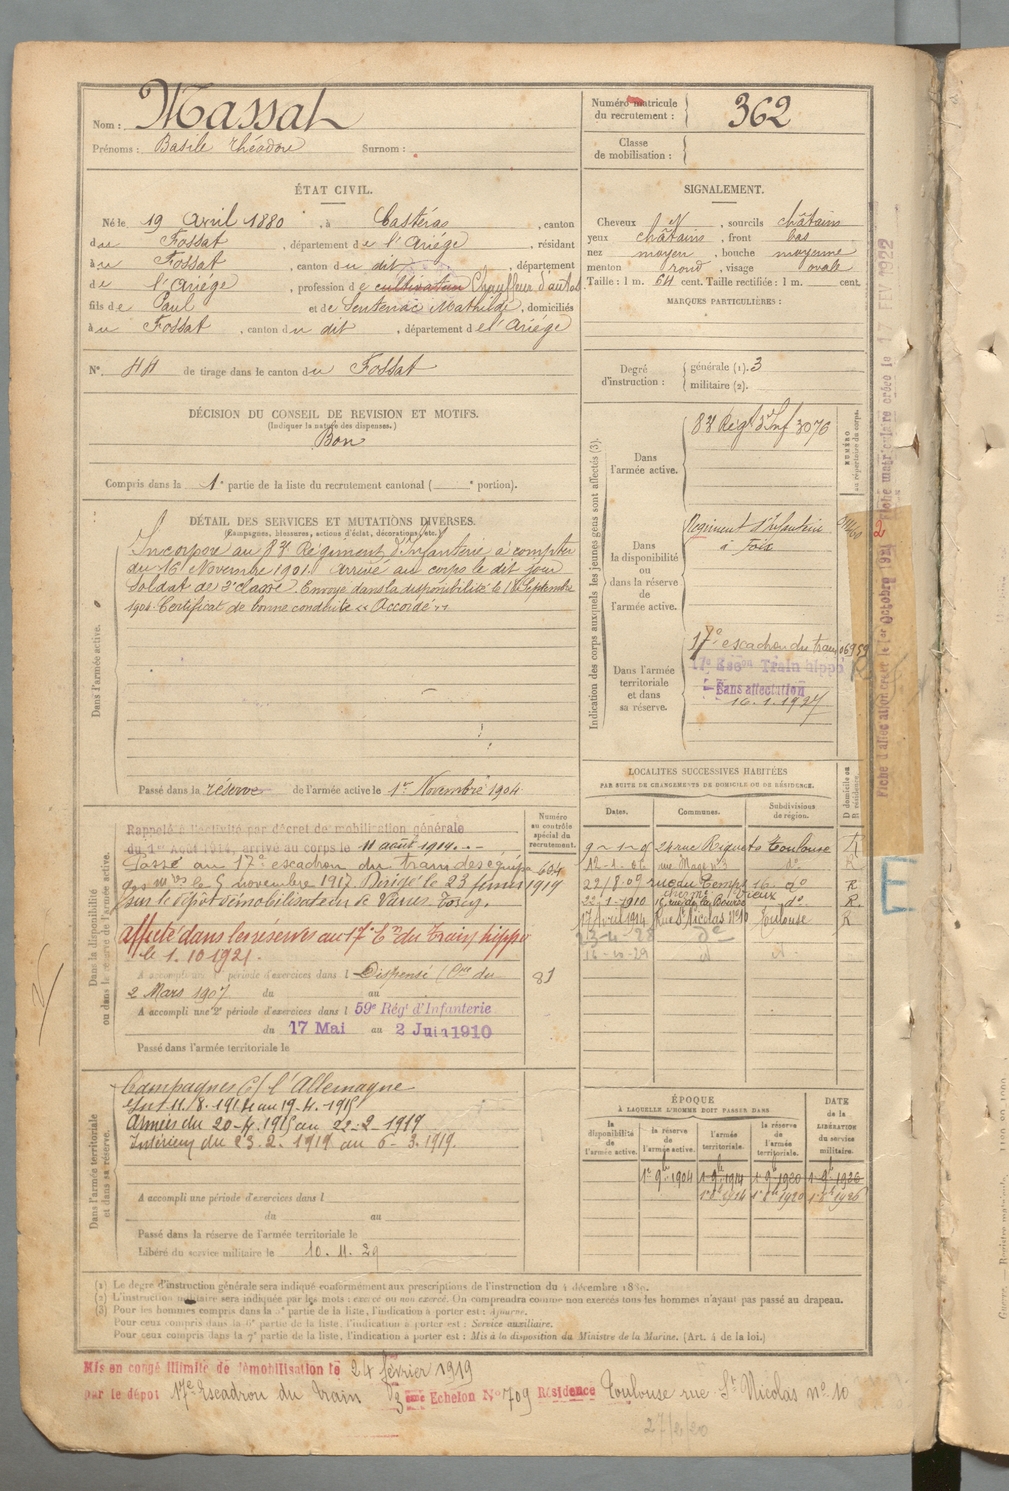 Nom : Massat
Prénoms : Basile Théodore Surnom :
Numéro matricule
du recrutement : 362
Classe
de mobilisation :
ÉTAT CIVIL.
Né le 19 Avril 1880, à Castéras, canton
du Fossat, département de l'Ariége, résidant
à u Fossat, canton du dit, département
de l'Ariége, profession de cultivateur Chauffeur d'autos
fils de Paul et de Sentenac Mathilde, domiciliés
à u Fossat, canton du dit, département de l'Ariége
N° 44 de tirage dans le canton du Fossat
SIGNALEMENT.
Cheveux ch N, sourcils châtains
yeux châtains, front bas
nez moyen, bouche moyenne
menton rond, visage ovale
Taille : 1 m. 64 cent. Taille rectifiée : 1 m. cent.
MARQUES PARTICULIÈRES :
Degré
d'instruction :
générale (1). 3
militaire (2).
DÉCISION DU CONSEIL DE REVISION ET MOTIFS.
(Indiquer la nature des dispenses.)
Bon
Compris dans la 1e partie de la liste du recrutement cantonal ( e portion).
DÉTAIL DES SERVICES ET MUTATIONS DIVERSES.
(Campagnes, blessures, actions d'éclat, décorations, etc.)
Dans l'armée active.
Incorporé au 83e Régiment d'Infanterie à compter
du 16 Novembre 1901. Arrivé au corps le dit jour
Soldat de 2e classe. Envoyé dans la disponibilité le Septembre
1904. Certificat de bonne conduite « Accordé »
Passé dans la réserve de l'armée active le 1er Novembre 1904
Indication des corps auxquels les jeunes gens sont affectés (3).
NUMÉRO
au répertoire du corps.
Dans
l'armée active.
83e Régt d'Inf 3076
Dans
la disponibilité
ou
dans la réserve
de
l'armée active.
Régiment d'Infanterie
à Foix
Dans l'armée
territoriale
et dans
sa réserve.
17e escadron du train 06959
17e Escon Train hippo
Sans affectation
16.1.1927
LOCALITÉS SUCCESSIVES HABITÉES
PAR SUITE DE CHANGEMENTS DE DOMICILE OU DE RÉSIDENCE.
Dates. Communes. Subdivisions
de région.
D domicile ou
R résidence.
24 rue Riquets Toulouse R
12-1-06 rue Mage n°3 do R
22/8.09 rue du Temps 16 do R
22-1-1910 16 rue de la Bourse do R
17 Avril 1914 Rue St Nicolas N°10 Toulouse R
23-4-28 do
16-10-29
Dans la disponibilité
ou dans la réserve de l'armée active.
Numéro
au contrôle
spécial du
recrutement.
Rappelé à l'activité par décret de mobilisation générale
du 1er Août 1914, arrivé au corps le 11 août 1914
Passé au 17e escadron du train des équip 604
ges le 5 novembre 1917 Dirigé le 23 février 1919
sur le dépôt démobilisateur de
affecté dans les réserves au 17e En du train hippo
le 1.10 1921.
A accompli une période d'exercices dans l Dispensé 81
2 Mars 1907 du au
A accompli une 2e période d'exercices dans l 59e Régt d'Infanterie
du 17 Mai au 2 Juin 1910
Passé dans l'armée territoriale le
Dans l'armée territoriale
et dans sa réserve.
Campagnes C/ l'Allemagne
Int 11.8.1914 au 19-4-1915
Armées du 20-4-1915 au 22-2-1919
Intérieur du 23.2.1919 au 6-3.1919
A accompli une période d'exercices dans l
du au
Passé dans la réserve de l'armée territoriale le
Libéré du service militaire le 10.11.29
ÉPOQUE
À LAQUELLE L'HOMME DOIT PASSER DANS
DATE
de la
LIBÉRATION
du service
militaire.
la
disponibilité
de
l'armée active.
la réserve
de
l'armée active.
l'armée
territoriale.
la réserve
de
l'armée
territoriale.
1er 9bre 1904 1er 9bre 1914 1er 9bre 1920 1er 9bre 1926
1er 8bre 1914 1er 8bre 1920 1er 8bre 1926
(1) Le degré d'instruction générale sera indiqué conformément aux prescriptions de l'instruction du 4 décembre 1889.
(2) L'instruction militaire sera indiquée par les mots : exercé ou non exercé. On comprendra comme non exercés tous les hommes n'ayant pas passé au drapeau.
(3) Pour les hommes compris dans la 5e partie de la liste, l'indication à porter est : Ajourné.
Pour ceux compris dans la 6e partie de la liste, l'indication à porter est : Service auxiliaire.
Pour ceux compris dans la 7e partie de la liste, l'indication à porter est : Mis à la disposition du Ministre de la Marine. (Art. 4 de la loi.)
Mis en congé illimité de démobilisation le 24 février 1919
par le dépôt 17e Escadron du train 3 ème Echelon N° 709 Résidence Toulouse rue St Nicolas n° 10
27/2/20
Fiche matriculaire créée le 1 FEV 1922
Fiche d'affectation créée le 1er Octobre 1921
E